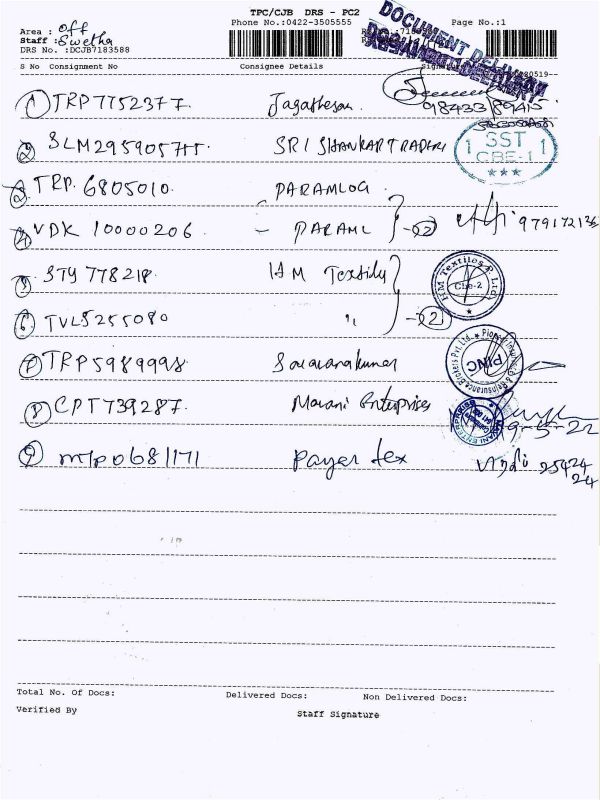 TPC/CJB DRS - PC2
Phone No.:0422-3505555 Page No.:1
Area : Off
Staff : Swetha
DRS No. :DCJB7183588
DOCUMENT DELIVERY
S No Consignment No Consignee Details
① TRP7752377. Jagatheesan. 9843389415
② SLM295905755 SRI SHANKAR TRADERS
1 SST 1
CBE-1
③ TRP. 6805010. PARAMLOG
④ VDK 10000206 - PARAML -②
⑤ STY 778218. HM Textiles
HM Textiles P. Ltd
Cbe-2
⑥ TVL5255080 " -②
⑦ TRP5989998 Saravanakumar
PINC
⑧ CPT739287. Mavani Enterprises
19-5-22
⑨ MTP0681171 payer tex 25424
24
Total No. Of Docs: Delivered Docs: Non Delivered Docs:
Verified By Staff Signature